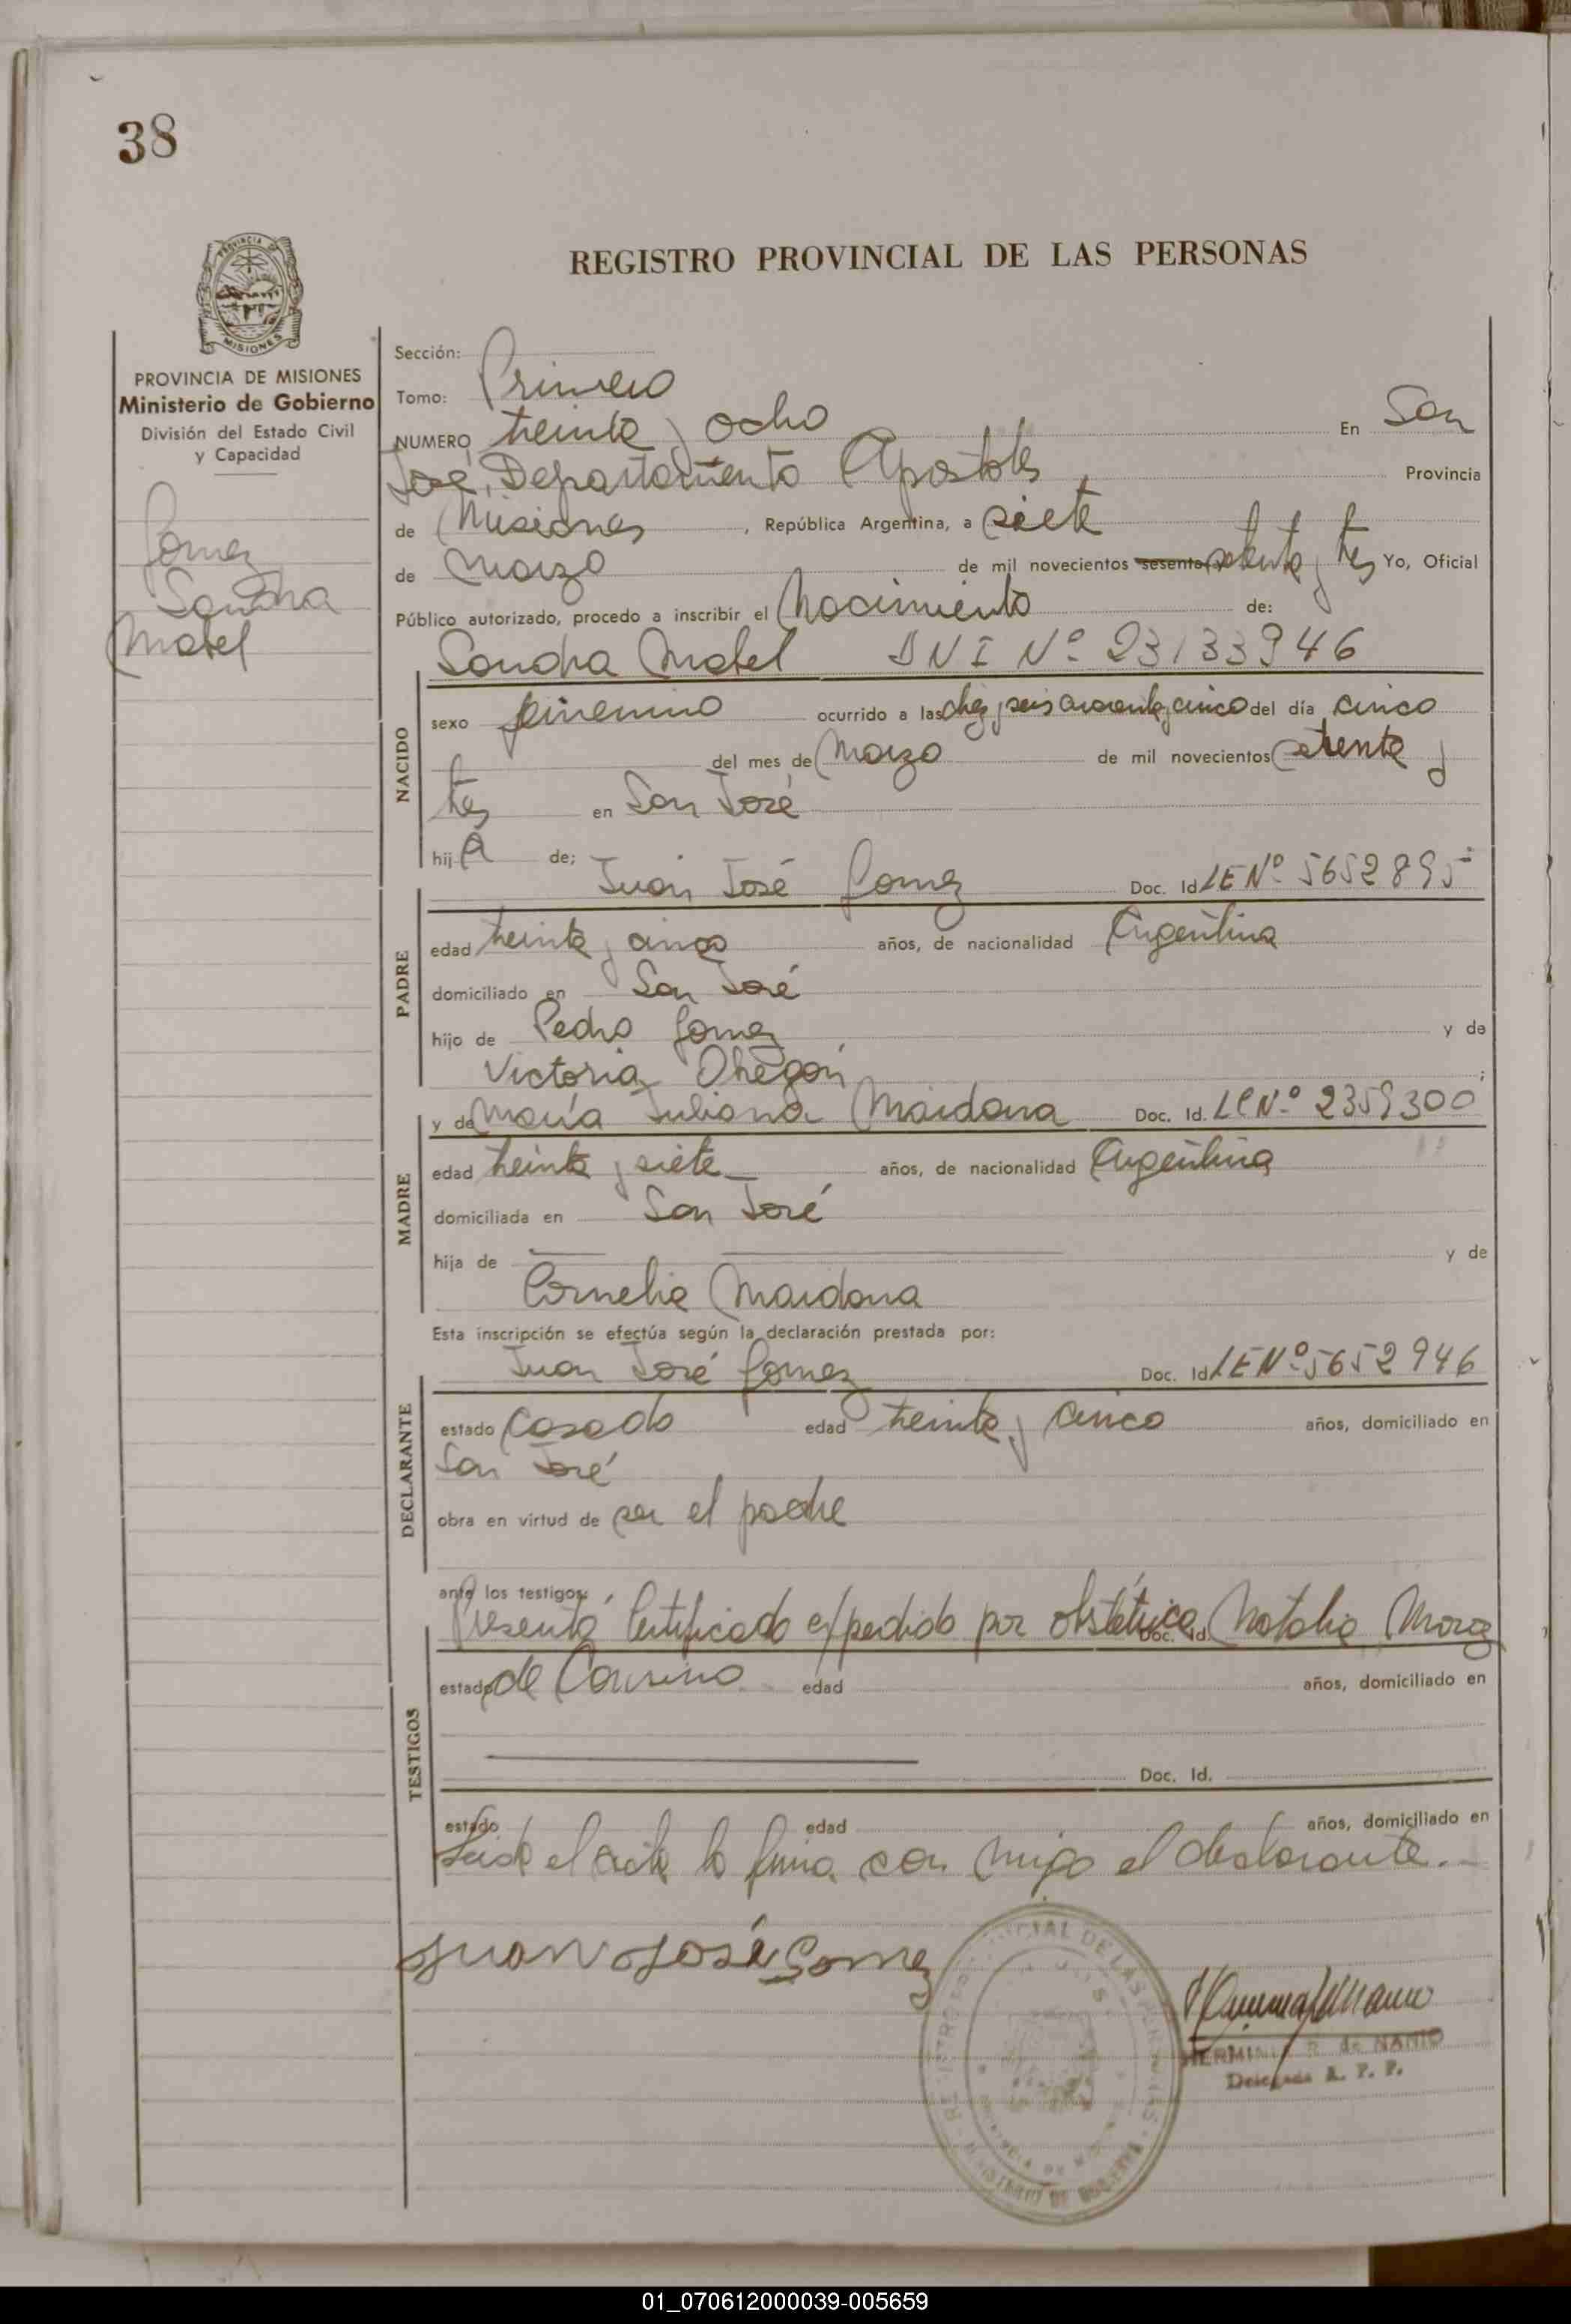 38
REGISTRO PROVINCIAL DE LAS PERSONAS
PROVINCIA DE
MISIONES
PROVINCIA DE MISIONES
Ministerio de Gobierno
División del Estado Civil
y Capacidad
Gomez
Sandra
Mabel
Sección:
Tomo: Primero
NUMERO treinta y ocho En San
José, Departamento Apostoles Provincia
de Misiones, República Argentina, a siete
de Marzo de mil novecientos sesenta y setenta y tres Yo, Oficial
Público autorizado, procedo a inscribir el Nacimiento de:
Sandra Mabel DNI Nº 23133946
NACIDO
sexo femenino ocurrido a las diez y seis cuarenta y cinco del día cinco
del mes de Marzo de mil novecientos setenta y
tres en San José
hij a de; Juan José Gomez Doc. Id LE Nº 5652895
PADRE
edad treinta y cinco años, de nacionalidad Argentina
domiciliado en San José
hijo de Pedro Gomez y de
Victoria Obregon ;
y de María Juliana Maidana Doc. Id. LC Nº 2359300
MADRE
edad treinta y siete años, de nacionalidad Argentina
domiciliada en San José
hija de y de
Cornelia Maidana
Esta inscripción se efectúa según la declaración prestada por:
Juan José Gomez Doc. Id LE Nº 5652946
DECLARANTE
estado Casado edad treinta y cinco años, domiciliado en
San José
obra en virtud de ser el padre
ante los testigos:
Presentó Certificado expedido por obstétrica Doc. Id. Natalia Moroz
TESTIGOS
estado de edad años, domiciliado en
Doc. Id.
estado edad años, domiciliado en
Leida el acta la firma con migo el declarante.
Juan José Gomez
de NANIO
Delegada R. P. P.
01_070612000039-005659